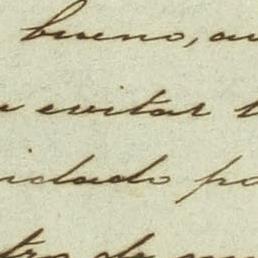 bueno, au
evitar
idado pa
tro de